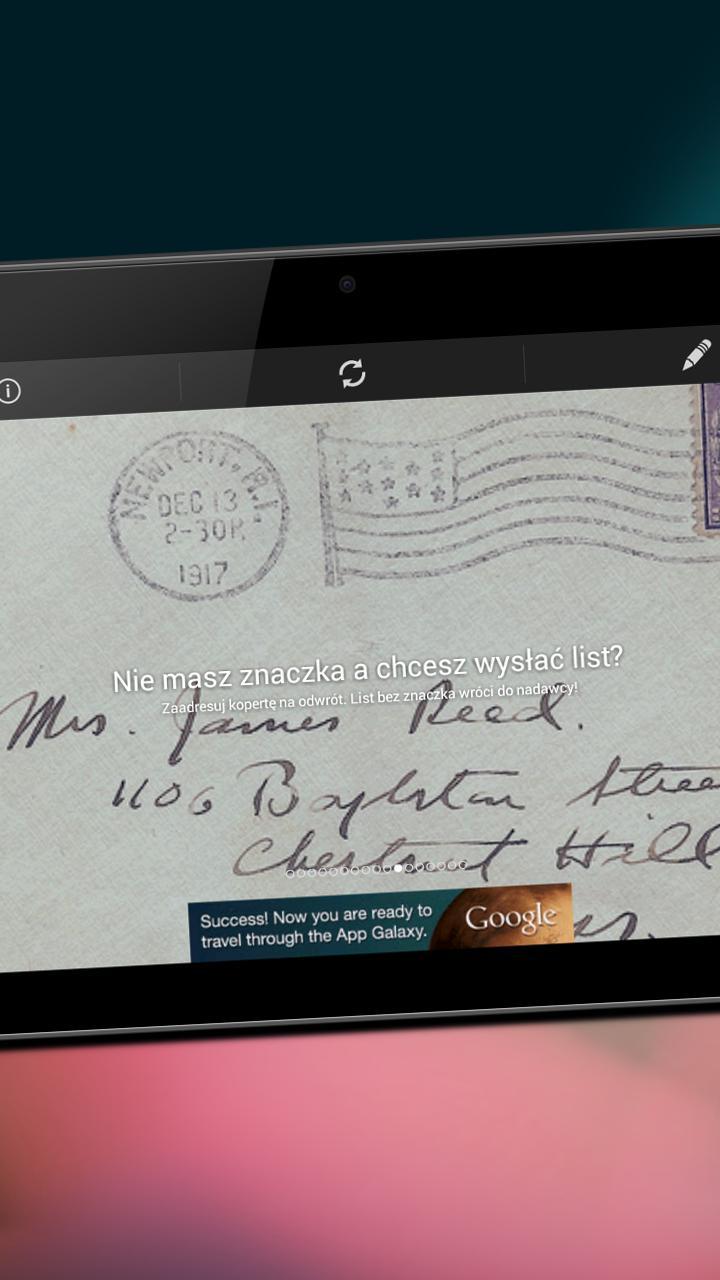 NEWPORT, R.I.
DEC 13
2-30P
1917
Nie masz znaczka a chcesz wysłać list?
Zaadresuj kopertę na odwrót. List bez znaczka wróci do nadawcy!
Mrs. James Reed.
1106 Boylston Stree
Chestnut Hill
Success! Now you are ready to
travel through the App Galaxy.
Google